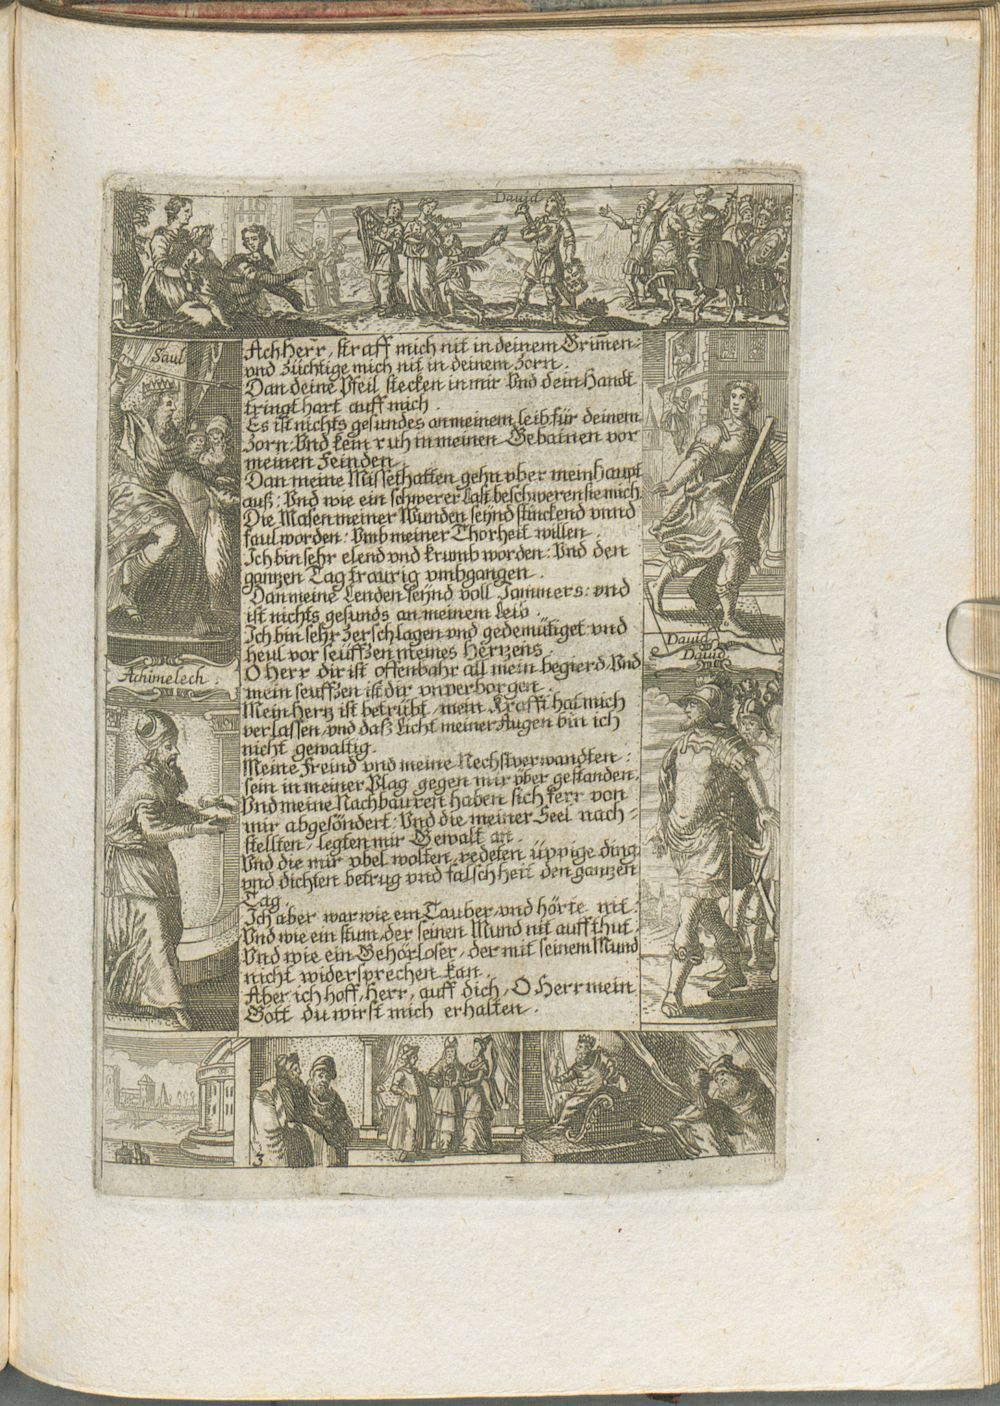 David
Saul
Ach Herr, straff mich nit in deinem Grim̄en:
vnd züchtige mich nit in deinem Zorn.
Dan deine Pfeil stecken in mir Vnd dein Handt
tringt hart auff mich.
Es ist nichts gesundes an meinem leib für deinem
Zorn: Vnd kein ruh in meinen Gebainen vor
meinen Feinden.
Dan meine Missethatten gehn vber mein haupt
auß: Vnd wie ein schwerer Last beschweren sie mich
Die Masen meiner Wunden seÿnd stinckend vnnd
faul worden: Vmb meiner Thorheit willen.
Ich bin sehr elend vnd krumb worden: Vnd den
gantzen Tag traurig vmbgangen.
Dan meine Lenden seÿnd voll Jammers: vnd
ist nichts gesunds an meinem Leib.
Ich bin sehr zerschlagen vnd gedemütiget vnd
heul vor seüffzen meines Hertzens.
O Herr dir ist offenbahr all mein begierd Vnd
mein seuffzen ist dir vnverborgen.
Mein Hertz ist betrübt, mein Krafft hat mich
verlassen, vnd daß Licht meiner Augen bin ich
nicht gewaltig.
Meine Freind vnd meine Nechstverwandten:
sein in meiner Plag gegen mir vber gestanden.
Vnd meine Nachbauren haben sich ferr von
mir abgesöndert: Vnd die meiner Seel nach-
stellten, legten mir Gewalt an.
Vnd die mir vbel wolten, redeten üppige ding
vnd dichten betrug vnd falschheit den gantzen
Tag.
Ich aber war wie ein Tauber, vnd hörte nit:
Vnd wie ein stum, der seinen Mund nit auffthut.
Vnd wie ein Gehörloser, der mit seinem Mund
nicht widersprechen kan.
Aber ich hoff, Herr, auff dich, O Herr mein
Gott du wirst mich erhalten.
David
David
Achimelech.
3